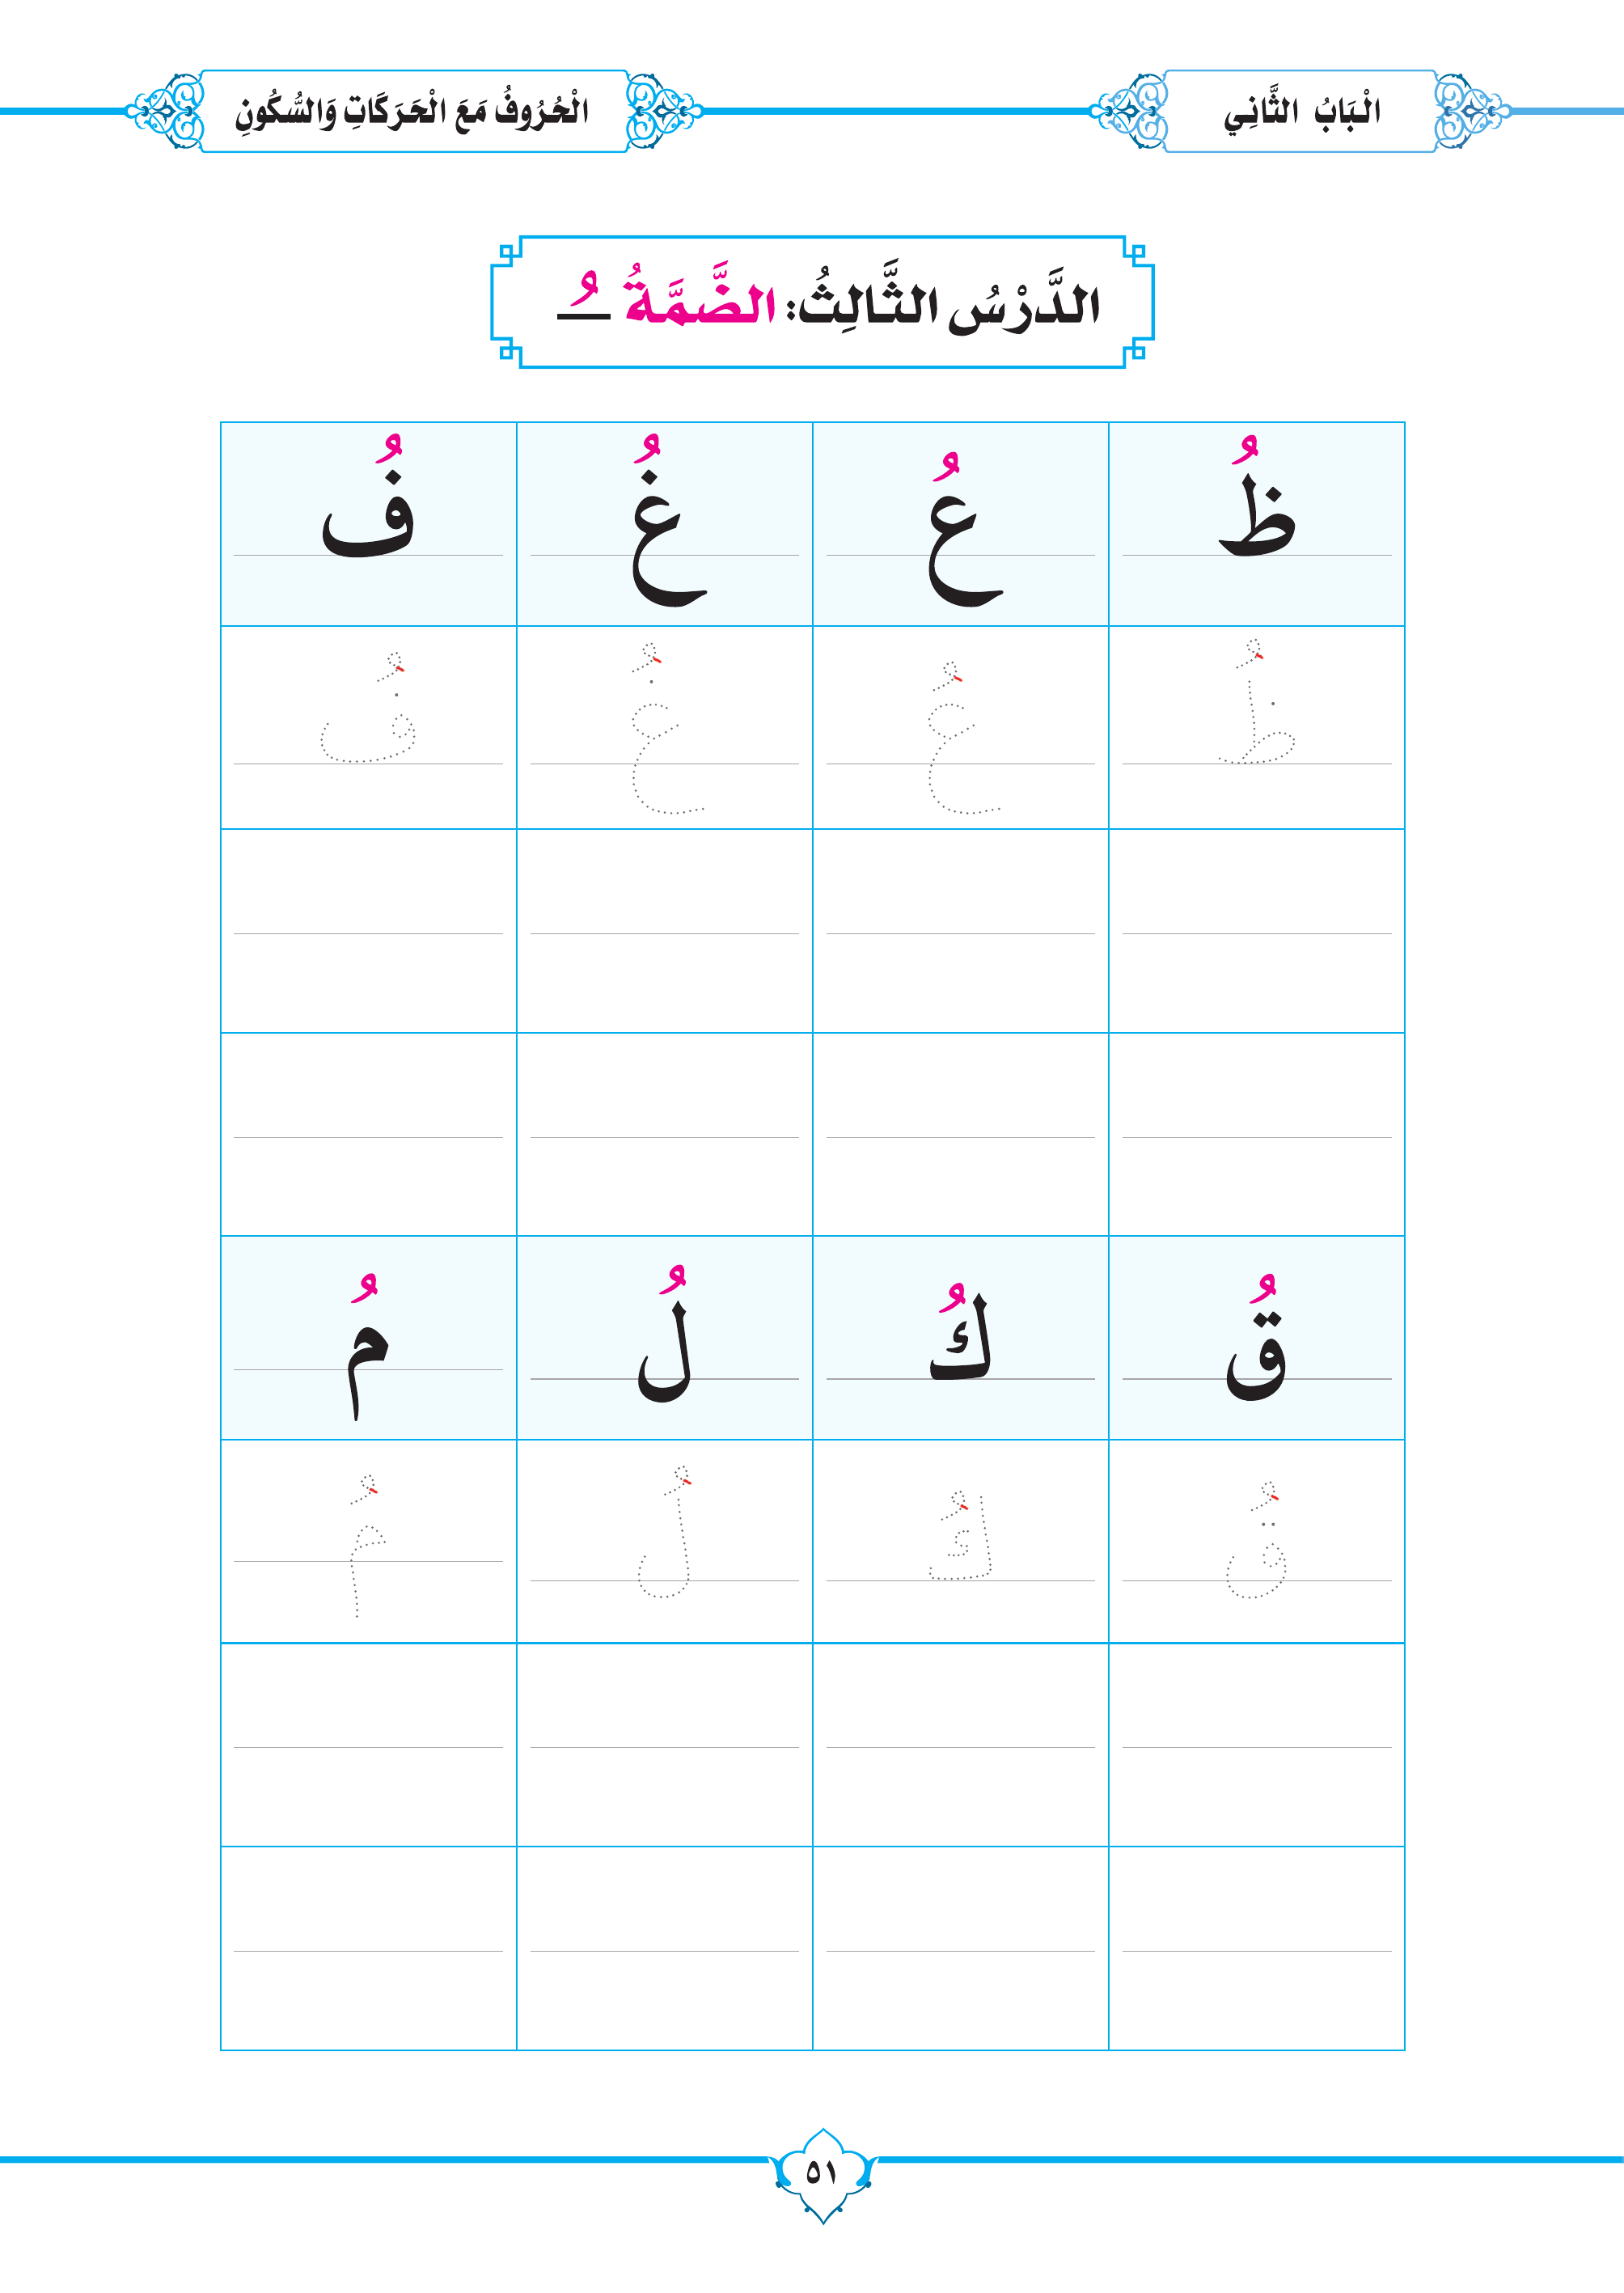 الْبَابُ الثَّانِي
الْحُرُوفُ مَعَ الْحَرَكَاتِ وَالسُّكُونِ
الدَّرْسُ الثَّالِثُ: الضَّمَّةُ ـُ
ظُ عُ غُ فُ
ظُ عُ غُ فُ
قُ كُ لُ مُ
قُ كُ لُ مُ
٥١